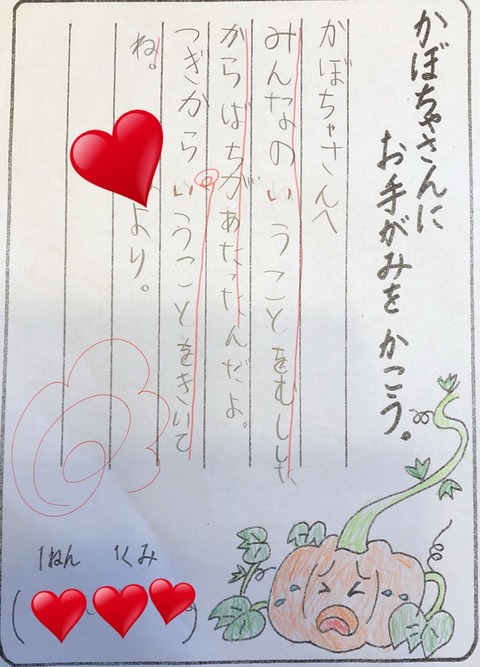 かぼちゃさんに
お手がみを かこう。
かぼちゃさんへ
みんなのいうことをむしした
からばちがあたったんだよ。
つぎからいうことをきいて
ね。
より。
1ねん 1くみ